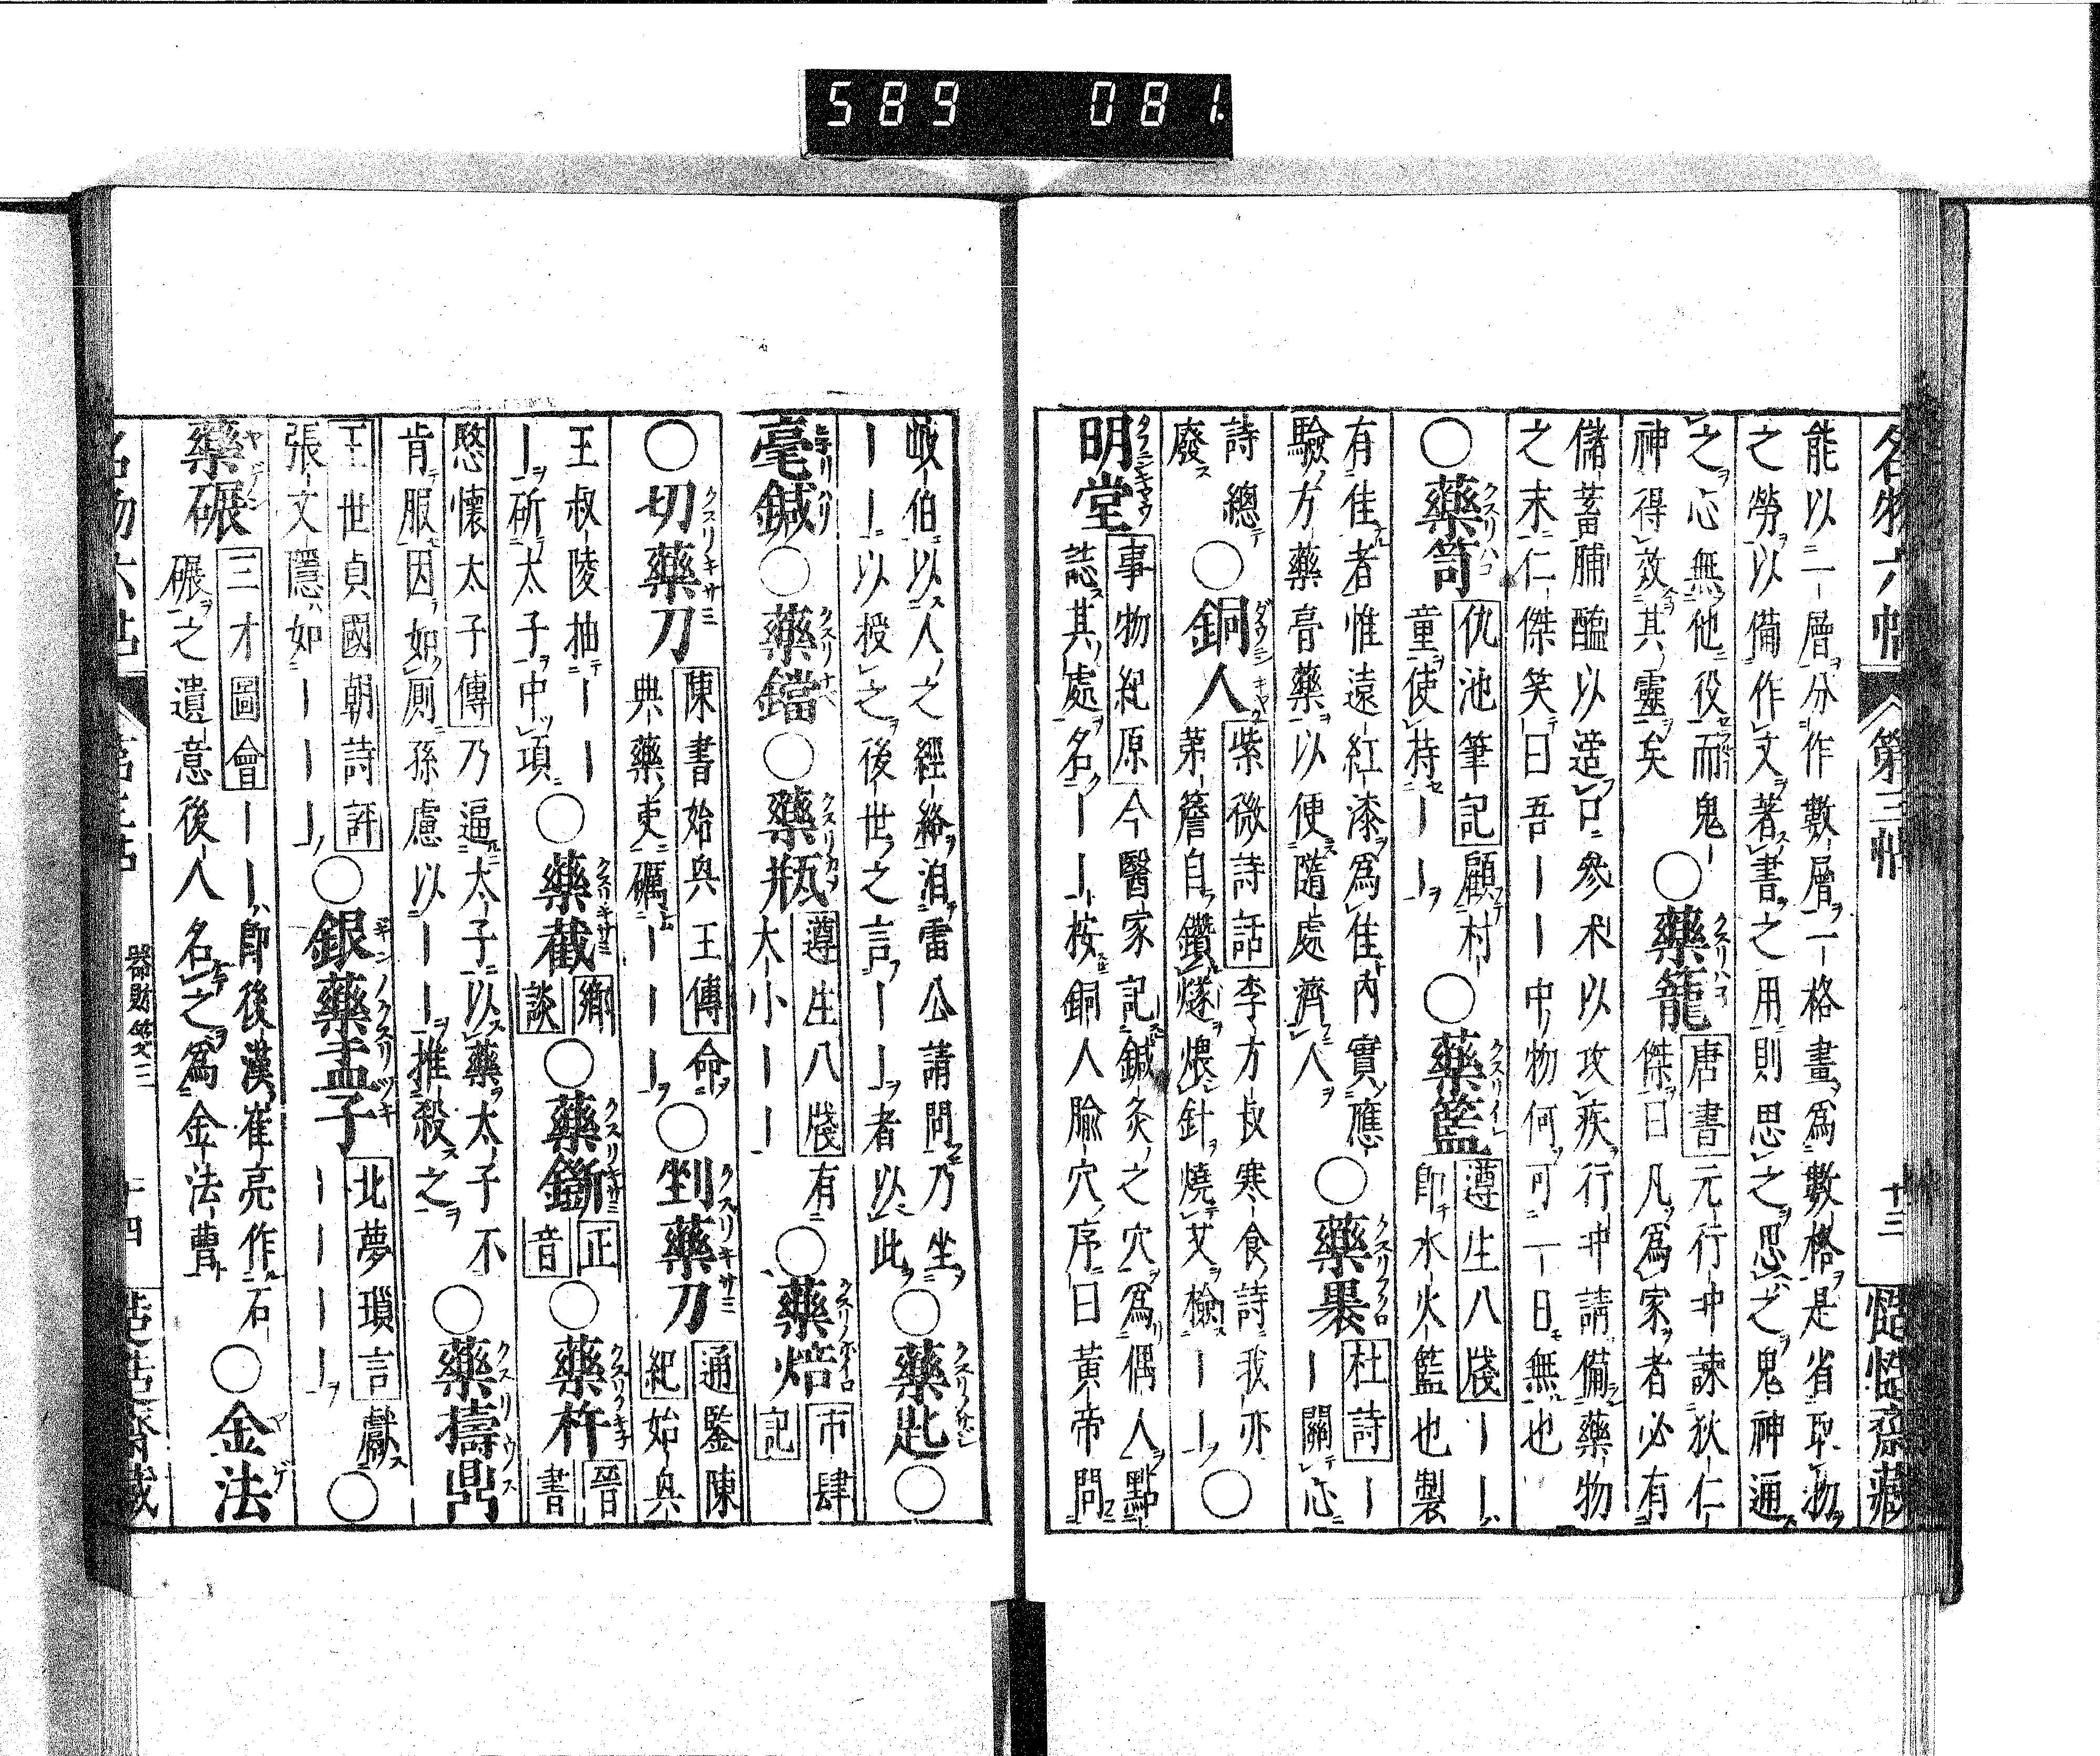 589 081
名物六帖 第三帖 十三 慥慥齋藏
能以一層分作數層一格畫爲數格是省取物
之勞以備作文著書之用則思之思之鬼神通
之心無他役而鬼
神得效其靈矣
○藥籠 唐書 元行冲諫狄仁
傑曰凡爲家者必有
儲蓄脯醢以適口參朮以攻疾行冲請備藥物
之末仁傑笑曰吾｜｜中物何可一日無也
○藥笥 仇池筆記 顧村
童使持｜｜
○藥籃 遵生八牋 ｜｜
卽水火籃也製
有佳者惟遠紅漆爲佳內實應
驗方藥膏藥以便隨處濟人
○藥褁 杜詩 ｜
｜關心
詩總
廢
○銅人 紫微詩話 李方叔寒食詩我亦
第簷自鑽燧煨針燒艾檢｜｜
○
明堂 事物紀原 今醫家記鍼灸之穴爲偶人點
誌其處名｜｜按銅人腧穴序曰黃帝問
岐伯以人之經絡洎雷公請問乃坐
｜｜以授之後世之言｜｜者以此
○藥匙 ○
毫鍼 ○藥鐺 ○藥瓶 遵生八牋 有
大小｜｜
○藥焙 市肆
記
○切藥刀 陳書始興王傳 命
典藥吏礪｜｜｜
○剉藥刀 通鑒陳
紀 始興
王叔陵抽｜｜
｜斫太子中項
○藥截 鄉
談
○藥斷 正
音
○藥杵 晉
書
愍懷太子傳 乃逼太子以藥太子不
肯服因如厠孫慮以｜｜推殺之
○藥擣臼
王世貞國朝詩評
張文隱如｜｜｜
○銀藥盂子 北夢瑣言 獻
｜｜｜｜
○
藥碾 三才圖會 ｜｜卽後漢崔亮作石
碾之遺意後人名之爲金法曹
○金法
名物六帖 第三帖 器財箋三 十四